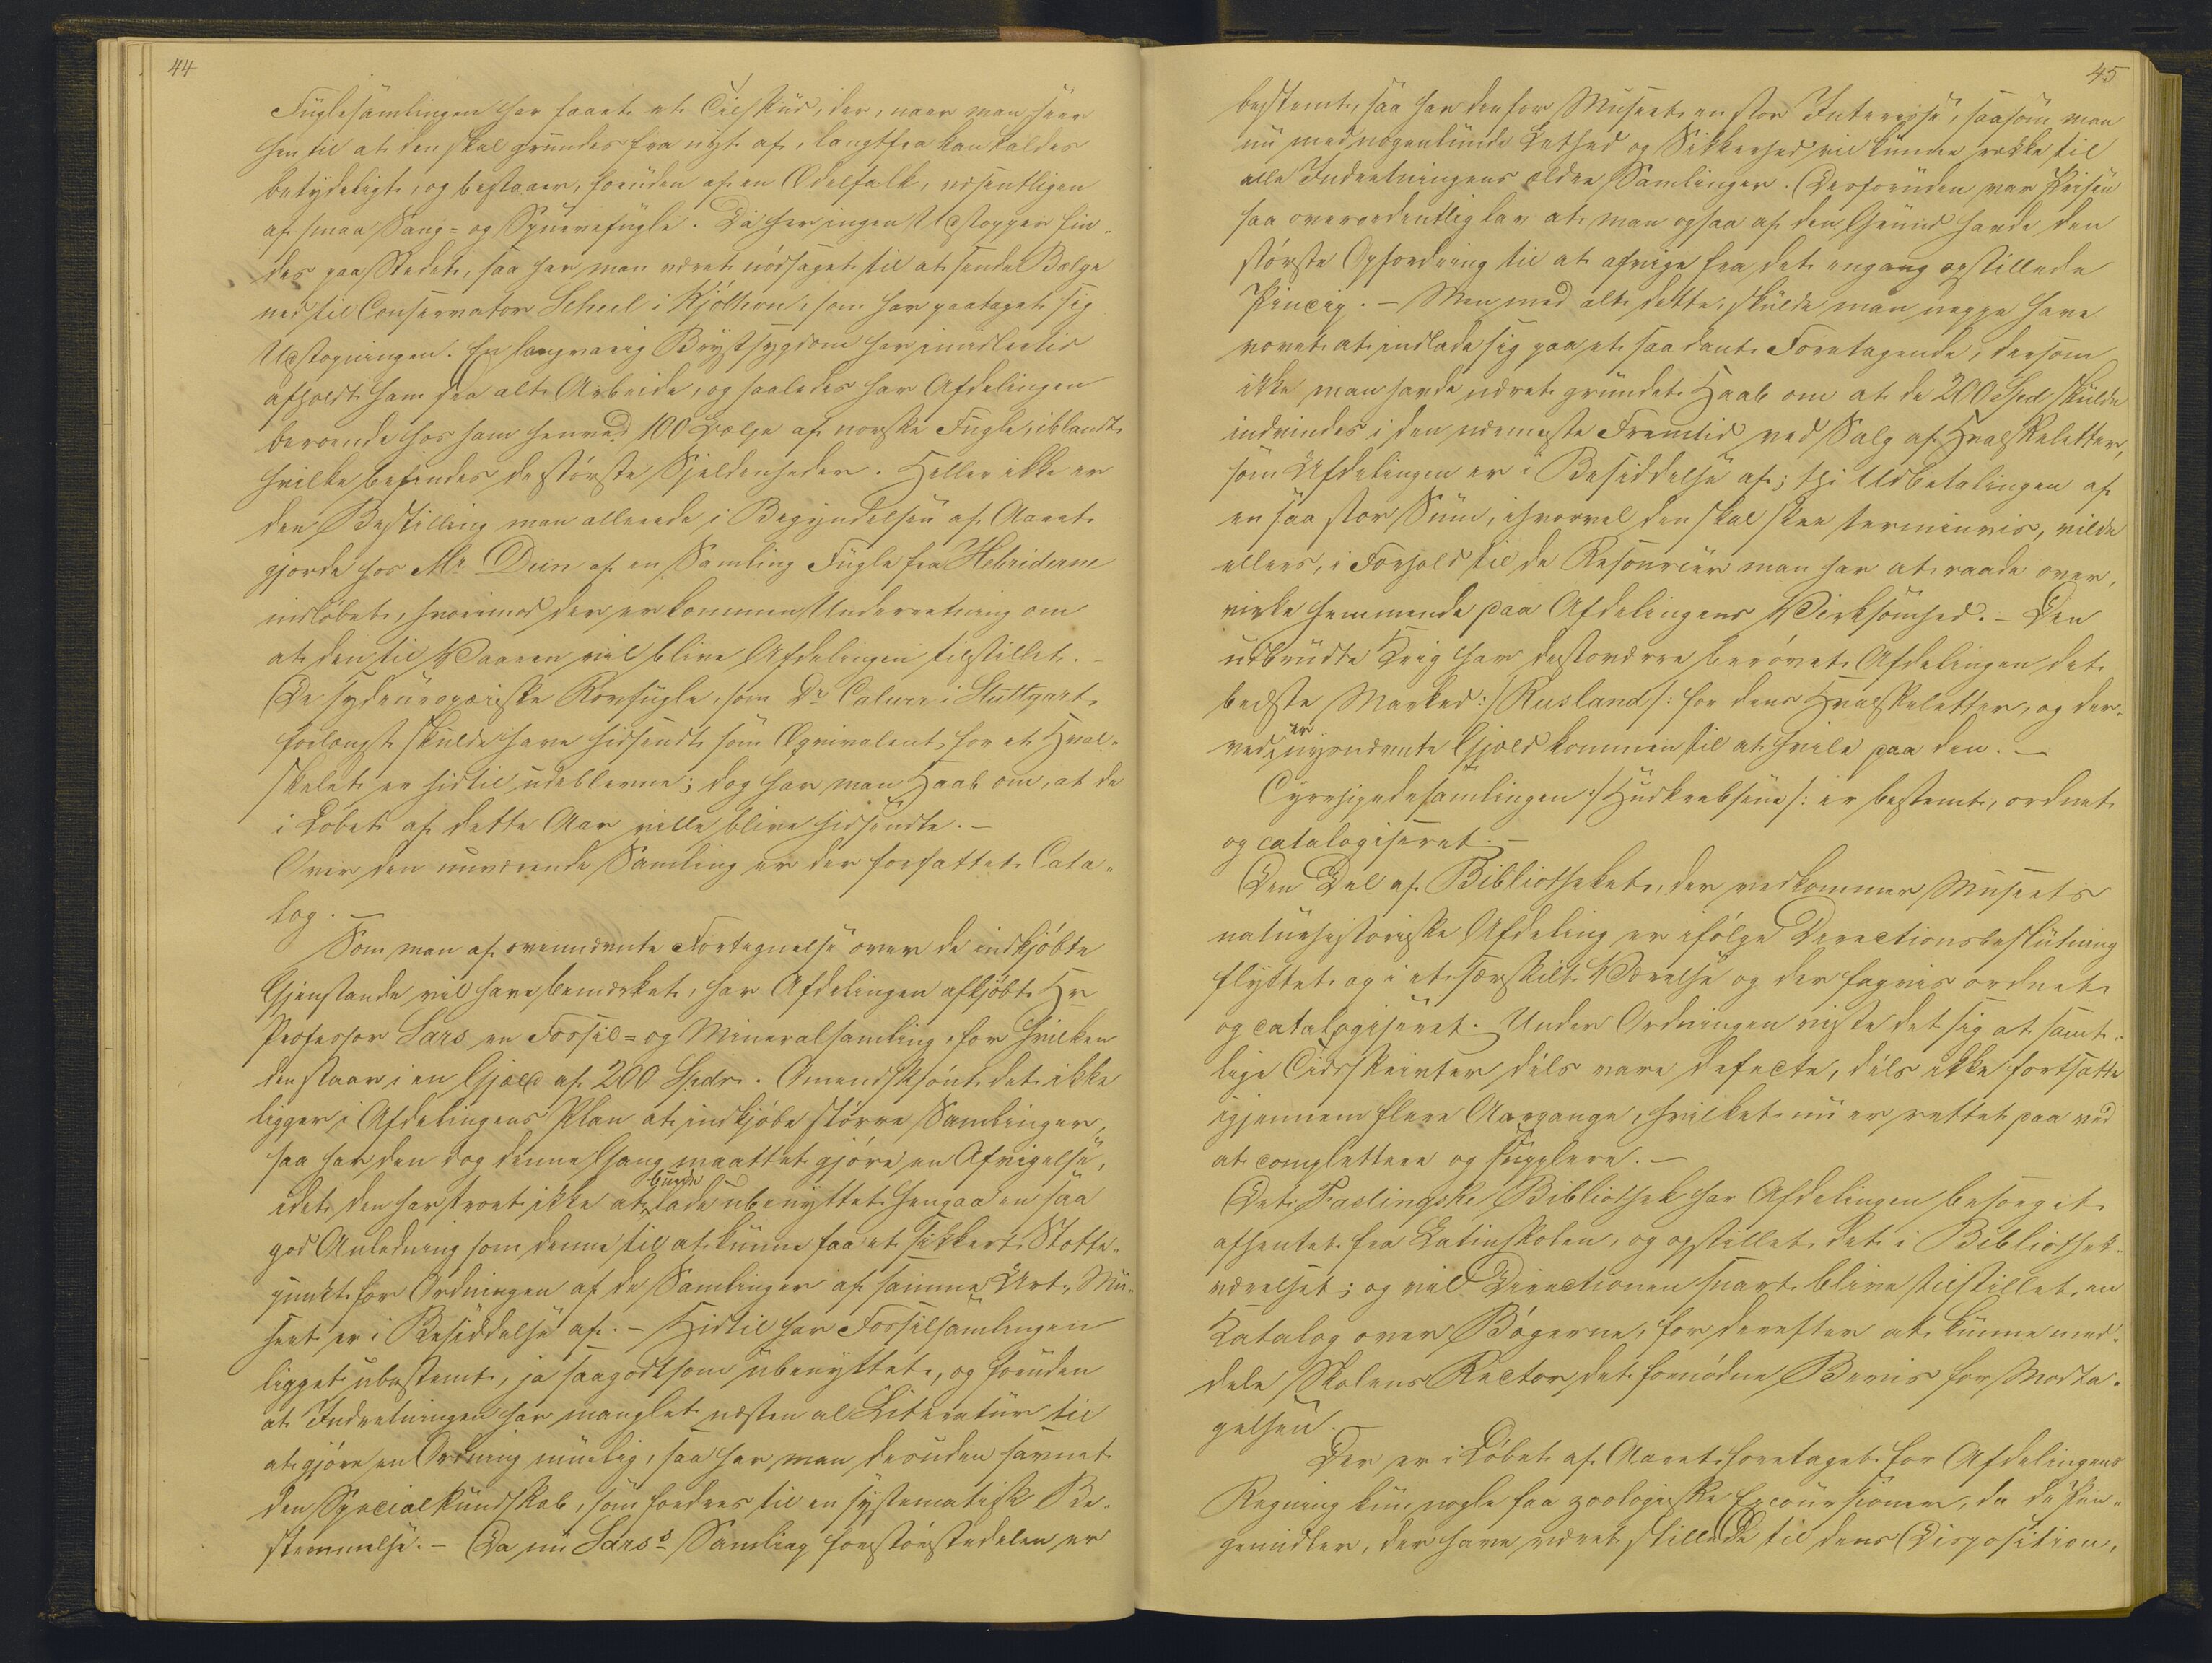 44
Fuglesamlingen har faaet et Tilskud, der, naar man seer
hen til at den skal grundes fra nyt af, langtfra kan kaldes
betydeligt, og bestaaer, foruden af en Ædelfalk, væsentligen
af smaa Sang- og Spurvefugle. Da her ingen Udstopper fin-
des paa Stedet, saa har man været nödsaget til at sende Bælge
ned til Conservator Scheel i Kjölhon, som har paataget sig
Udstopningen. En langvarig Brystsygdom har imidlertid
afholdt ham fra alt Arbeide, og saaledes har Afdelingen
beroende hos ham henved 100 Bælge af norske Fugle, iblandt
hvilke befindes de störste Sjeldenheder. Heller ikke er
den Bestilling man allerede i Begyndelsen af Aaret
gjorde hos Mr. Dunn af en Samling Fugle fra Hebriderne
indlöbet, hvorimod der er kommen Underretning om
at den til Vaaren vil blive Afdelingen tilstillet.
De sydeuropæiske Rovfugle, som Dr Calwer i Stuttgart
forlængst skulde have hidsendt som Æqvivalent for et Hval-
skelet er hidtil udeblevne; dog har man Haab om, at de
i Löbet af dette Aar ville blive hidsendte.—
Over den nuværende Samling er der forfattet Cata-
log.—
Som man af ovennævnte Fortegnelse over de indkjöbte
Gjenstande vil have bemærket, har Afdelingen afkjöbt Hr
Professor Sars en Fossil- og Mineralsamling, for hvilken
den staar i en Gjæld af 200 Spdr. Omendskjönt det ikke
ligger i Afdelingens Plan at indkjöbe större Samlinger,
saa har den dog denne Gang maattet gjöre en Afvigelse,
burde
idet den har troet ikke at lade ubenyttet hengaa en saa
god Anledning som denne til at kunne faa et sikkert Stötte-
punkt for Ordningen af de Samlinger af samme Art, Mu-
seet er i Besiddelse af.— Hidtil har Fossilsamlingen
ligget ubestemt, ja saagodtsom ubenyttet, og foruden
at Indretningen har manglet næsten al Literatur til
at gjöre en Ordning muelig, saa har man desuden savnet
den Specialkundskab, som fordres til en systematisk Be-
stemmelse.— Da nu Sars's Samling forstörstedelen er
45
bestemt, saa har den for Museet en stor Interesse, saasom man
nu med nogenlunde Lethed og Sikkerhed vil kunne række til
alle Indretningens ældre Samlinger. Desforuden var Prisen
saa overordentlig lav at man ogsaa af den Grund havde den
störste Opfordring til at afvige fra det engang opstillede
Princip.— Men med alt dette, skulde man neppe have
vovet at indlade sig paa et saadant Foretagende, dersom
ikke man havde næret grundet Haab om at de 200 Spd skulde
indvindes i den nærmeste Fremtid ved Salg af Hvalskeletter,
som Afdelingen er i Besiddelse af; thi Udbetalingen af
en saa stor Sum, ihvorvel den skal skee terminvis, vilde
ellers, i Forhold til de Resourcer man har at raade over,
virke hemmende paa Afdelingens Virksomhed.— Den
udbrudte Krig har destoværre berövet Afdelingen det
bedste Marked :/Rusland/: for dens Hvalskeletter, og der-
er
ved nysnævnte Gjæld kommen til at hvile paa den.—
Cyrripedesamlingen :/Hudkrebsene/: er bestemt, ordnet
og catalogiseret.—
Den Del af Bibliotheket, der vedkommer Museets
naturhistoriske Afdeling er ifölge Directionsbeslutning
flyttet op i et særskilt Værelse og der fagvis ordnet
og catalogiseret. Under Ordningen viste det sig at samt-
lige Tidsskrivter dels vare defecte, dels ikke fortsatte
igjennem flere Aargange, hvilket nu er rettet paa ved
at complettere og supplere.—
Det Paslingske Bibliothek har Afdelingen besörget
afhentet fra Latinskolen, og opstillet det i Bibliothek-
værelset; og vil Directionen snart blive tilstillet en
Katalog over Bögerne, for derefter at kunne med-
dele Skolens Rector det fornödne Beviis for Modta-
gelsen.—
Der er i Löbet af Aaret foretaget for Afdelingens
Regning kun nogle faa zoologiske Excursioner, da de Pen-
gemidler, der have været stillede til dens Disposition,